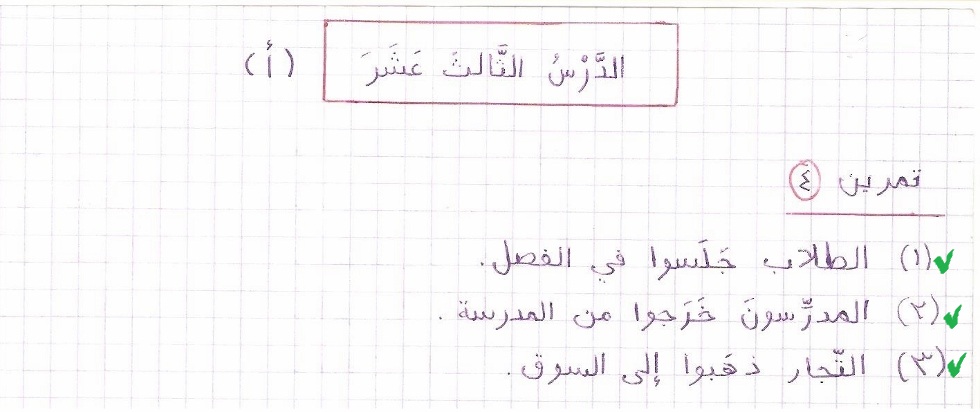 الدَّرْسُ الثَّالثَ عَشَرَ (أ)
تمرين ٤
(١) الطلاب جَلَسوا في الفصل.
(٢) المدرِّسونَ خَرَجوا من المدرسة.
(٣) التّجار ذهَبوا إلى السوق.